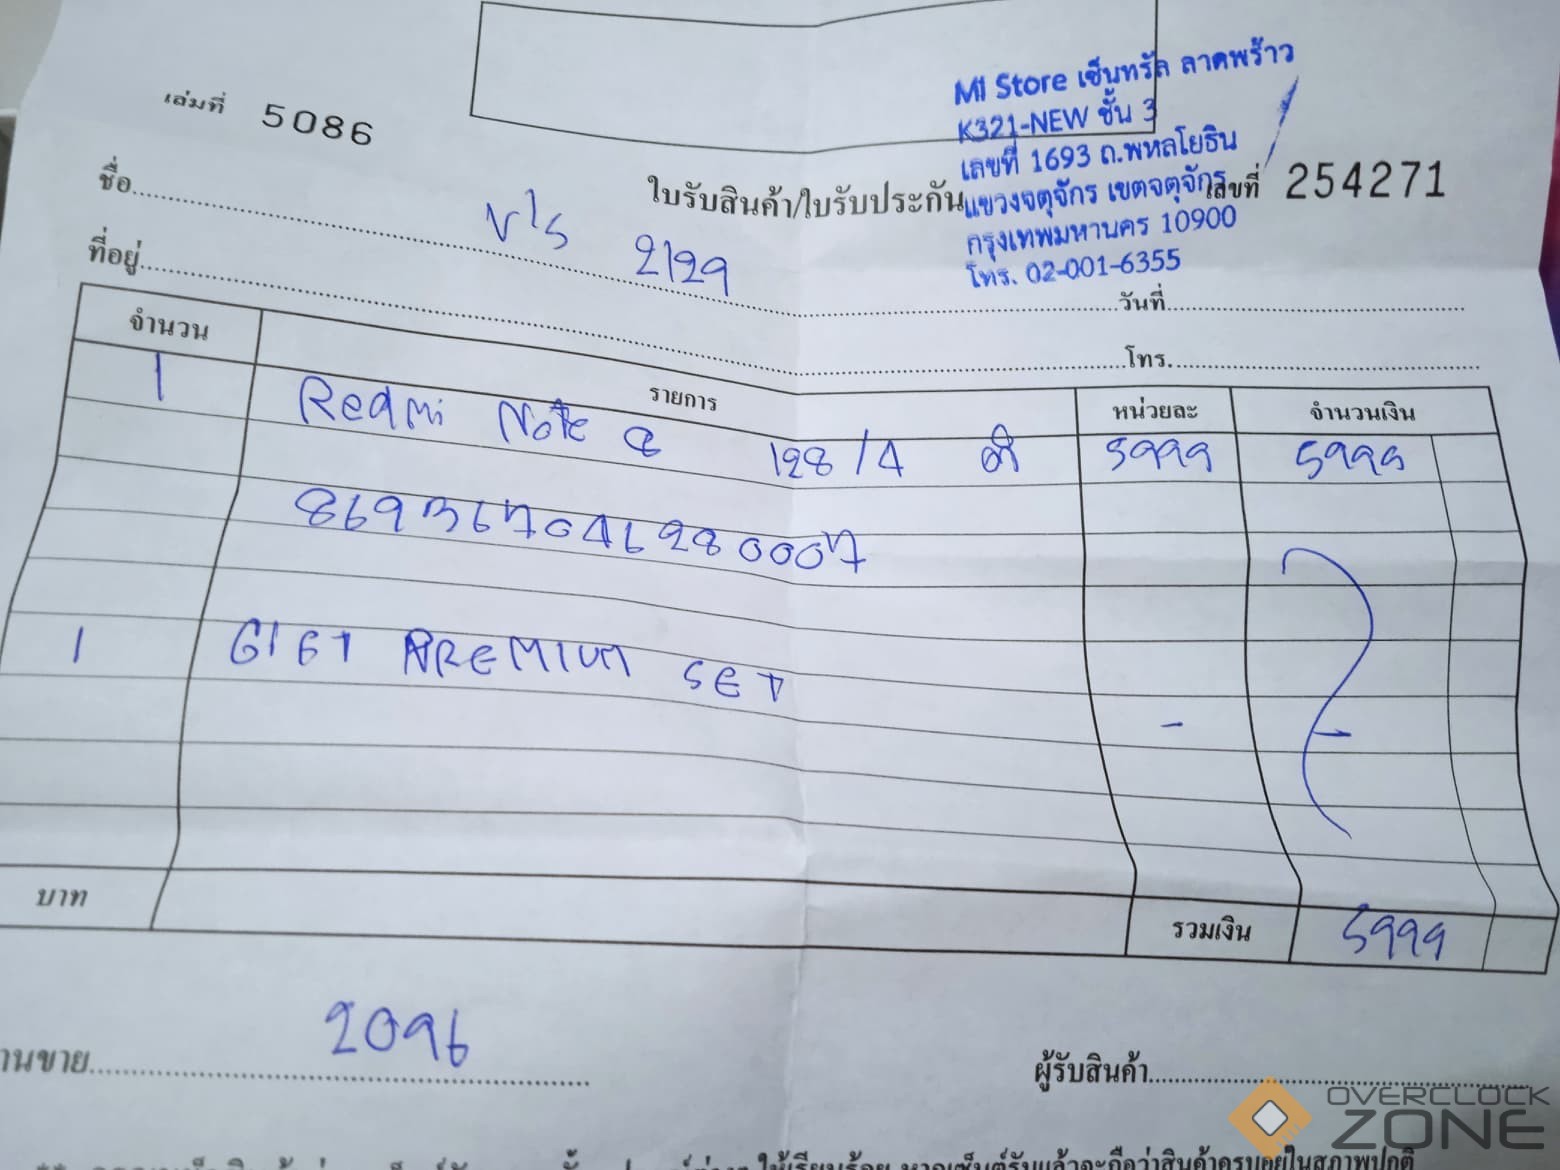 MI Store เซ็นทรัล ลาดพร้าว
K321-NEW ชั้น 3
เลขที่ 1693 ถ.พหลโยธิน
แขวงจตุจักร เขตจตุจักร
กรุงเทพมหานคร 10900
โทร. 02-001-6355
เล่มที่ 5086
ใบรับสินค้า/ใบรับประกัน
เลขที่ 254271
ชื่อ 2129
วันที่
ที่อยู่
โทร.
จำนวน รายการ หน่วยละ จำนวนเงิน
1 Redmi Note 8 128/4 5999 5999
869367046280007
1 GIFT PREMIUM SET - -
บาท รวมเงิน 5999
านขาย 2096
ผู้รับสินค้า
OVERCLOCK
ZONE
ให้เรียบร้อย หากเซ็นต์รับแล้วจะถือว่าสินค้าครบอยู่ในสภาพปกติ